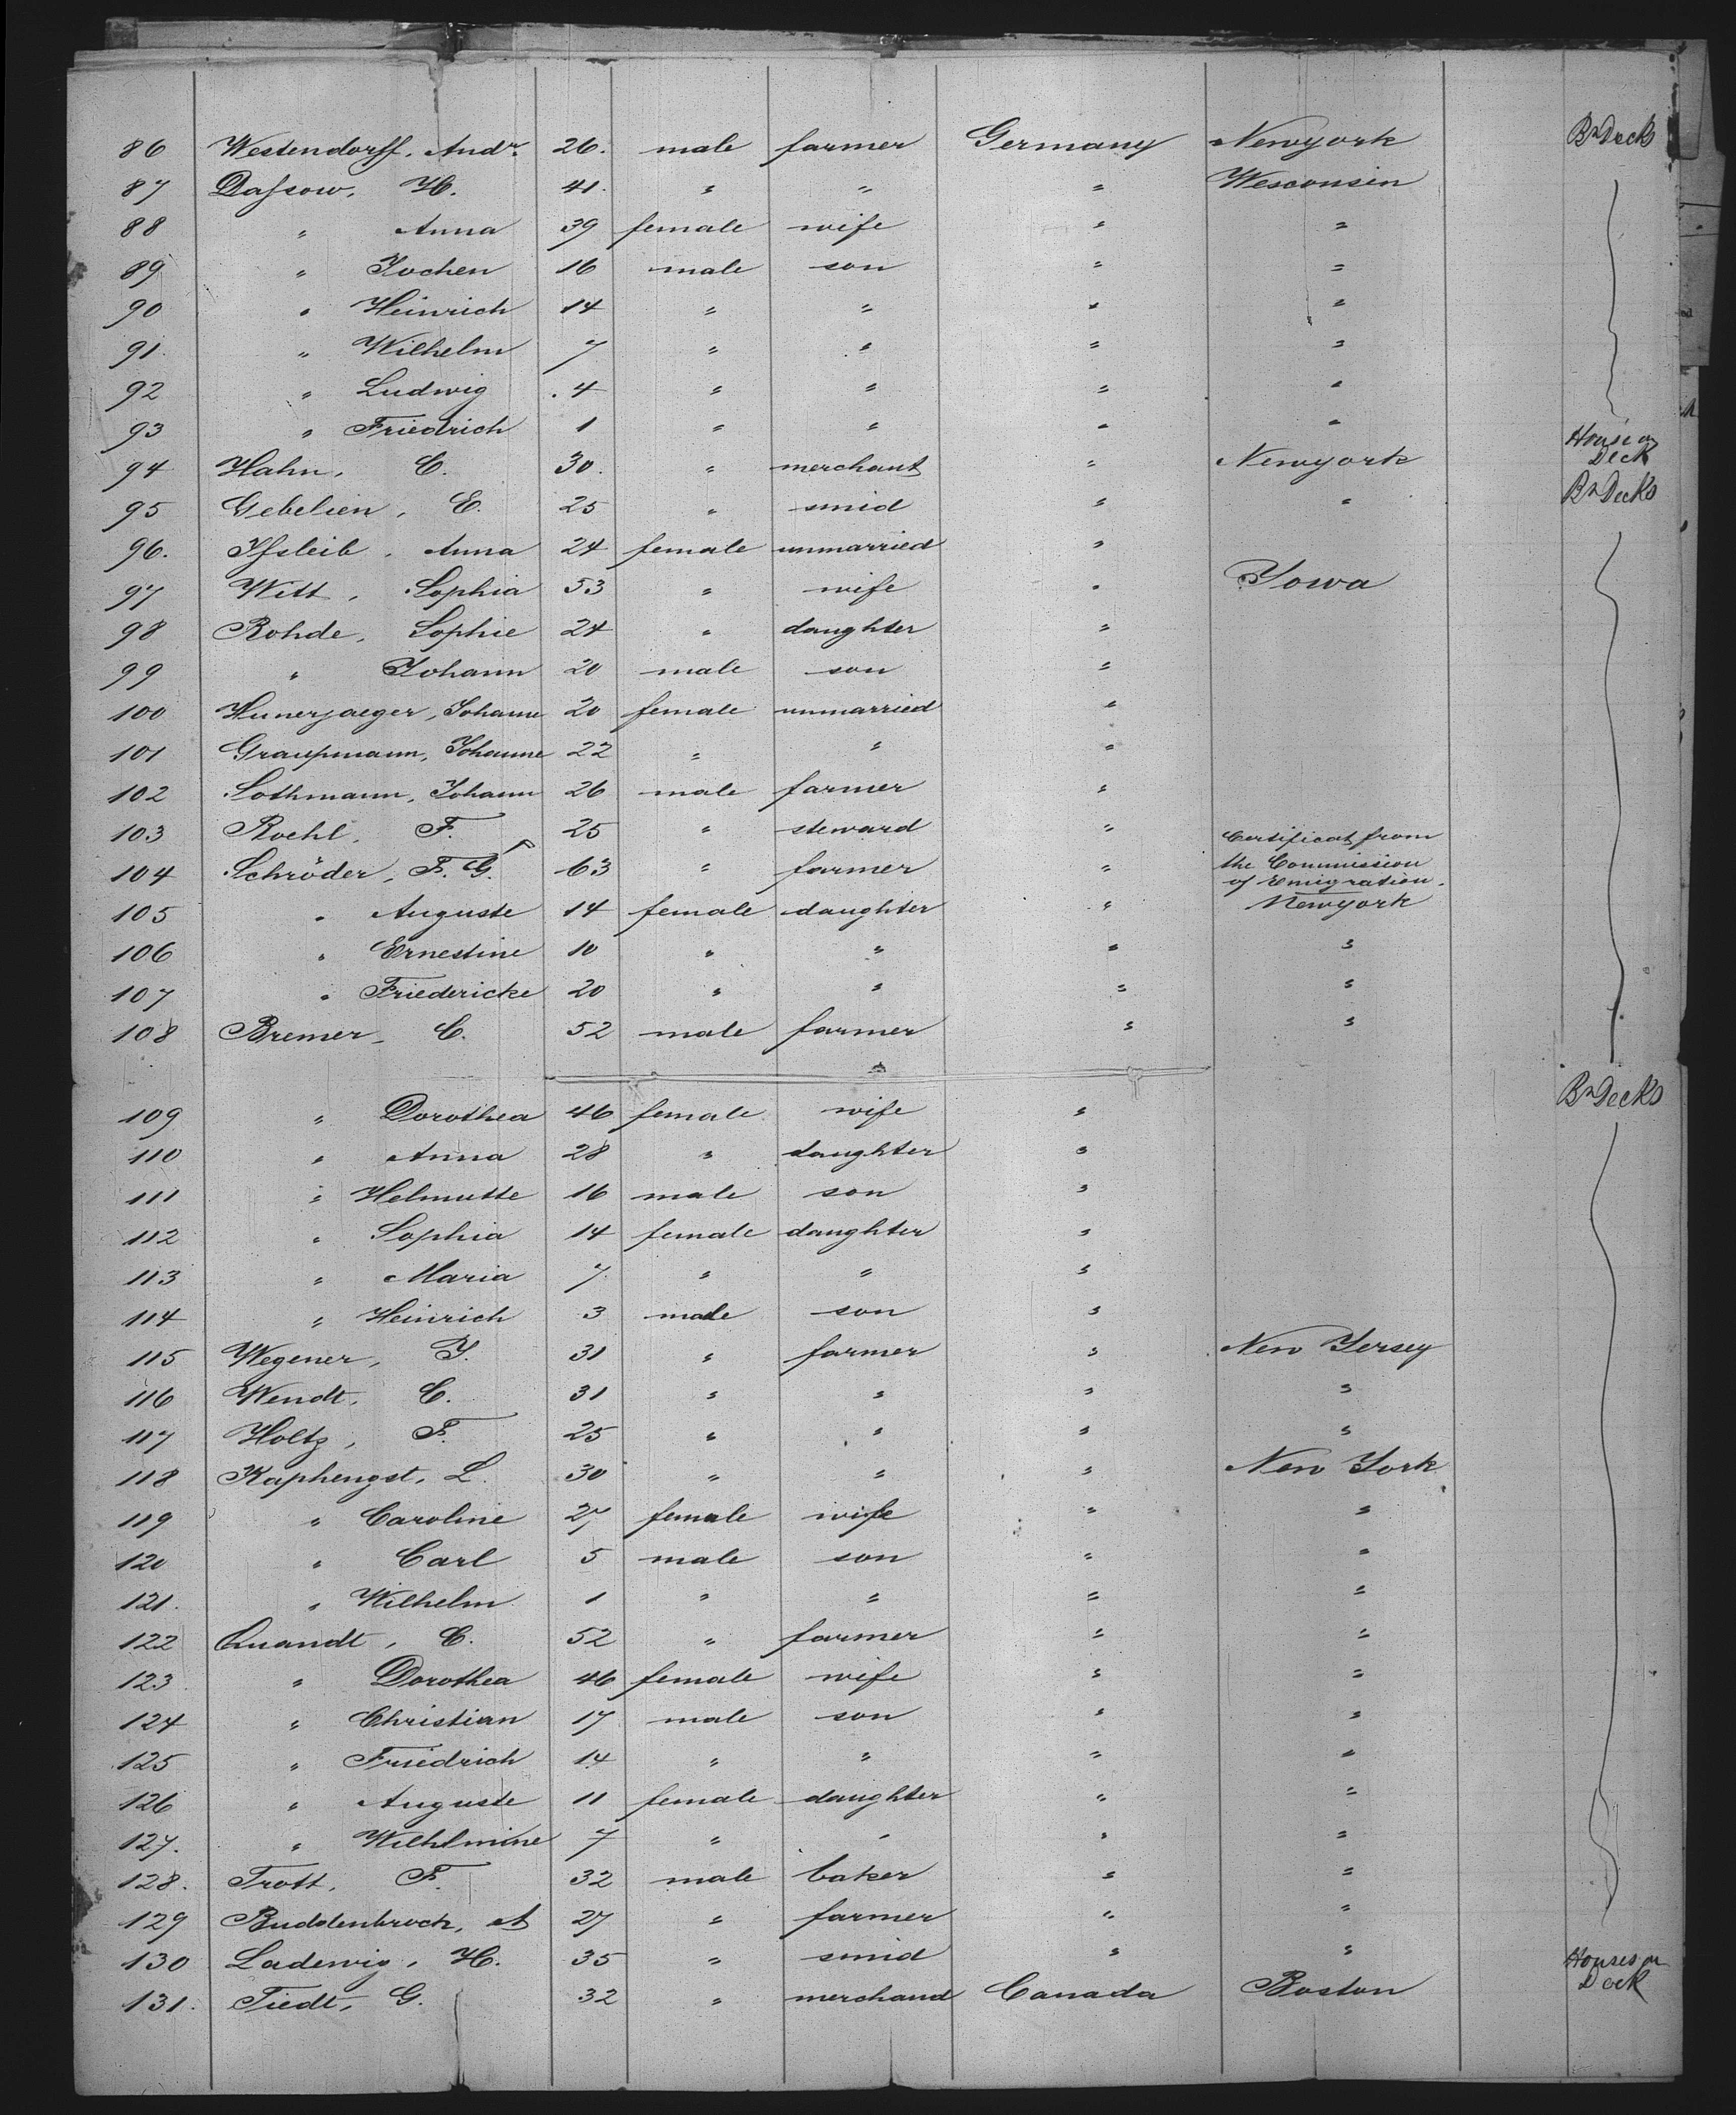 86 Westendorff, Andr. 26. male farmer Germany Newyork Bn Decks
87 Daſsow, H. 41. " " " Wesconsin
88 " Anna 39 female wife " "
89 " Jochen 16 male son " "
90 " Heinrich 14 " " " "
91. " Wilhelm 7 " " " "
92 " Ludwig 4 " " " "
93 " Friedrich 1 " " " "
94 Hahn, C. 30. " merchant " Newyork House on Deck
95 Gebelien, E. 25 " smid " " Bn Decks
96. Iſsleib, Anna 24 female unmarried "
97 Witt, Sophia 53 " wife " Iowa
98 Rohde, Sophie 24 " daughter "
99 " Johann 20 male son "
100 Hunerjaeger, Johanne 20 female unmarried "
101 Graupmann, Johanne 22 " " "
102 Lothmann, Johann 26 male farmer "
103 Roehl, F. 25 " steward " Certificat from
104 Schröder, F. G. 63 " farmer " the Commission
of Emigration.
105 " Auguste 14 female daughter " Newyork
106 " Ernestine 10 " " " "
107 " Friedericke 20 " " " "
108 Bremer, C. 52 male farmer " "
109 " Dorothea 46 female wife " Bn Decks
110 " Anna 28 " daughter "
111 " Helmutte 16 male son "
112 " Sophia 14 female daughter "
113 " Maria 7. " " "
114 " Heinrich 3 male son "
115 Wegener, J. 31 " farmer " New Jersey
116 Wendt, C. 31 " " " "
117 Holtz, F. 25 " " " "
118 Kaphengst, L. 30 " " " New York
119 " Caroline 27 female wife " "
120 " Carl 5 male son " "
121. " Wilhelm 1 " " " "
122 Quandt, C. 52 " farmer " "
123 " Dorothea 46 female wife " "
124 " Christian 17 male son " "
125 " Friedrich 14 " " " "
126 " Auguste 11 female daughter " "
127. " Wilhlmine 7 " " " "
128. Trott, F. 32 male baker " "
129 Buddenbrock, A 27 " farmer " "
130 Ladewig, H. 35 " smid " "
131. Tiedt, G. 32 " merchand Canada Boston Houses on Deck